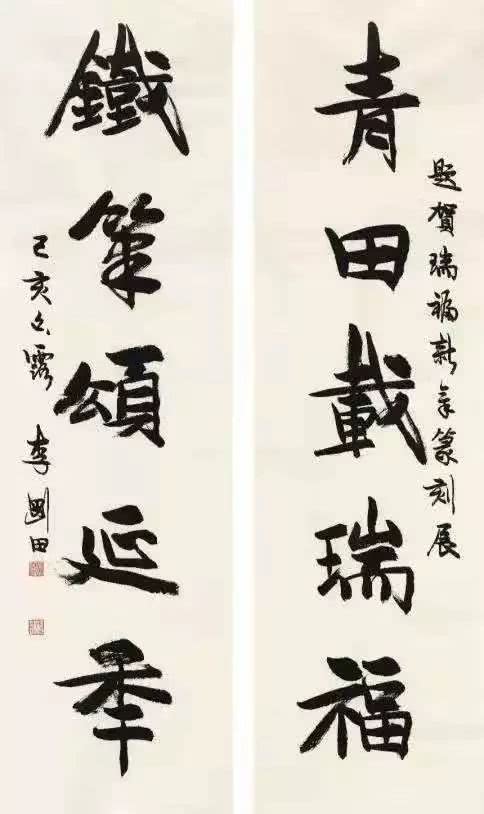 題賀瑞福新篆刻展
青田載瑞福
鐵筆頌延秊
己亥白露 李剛田